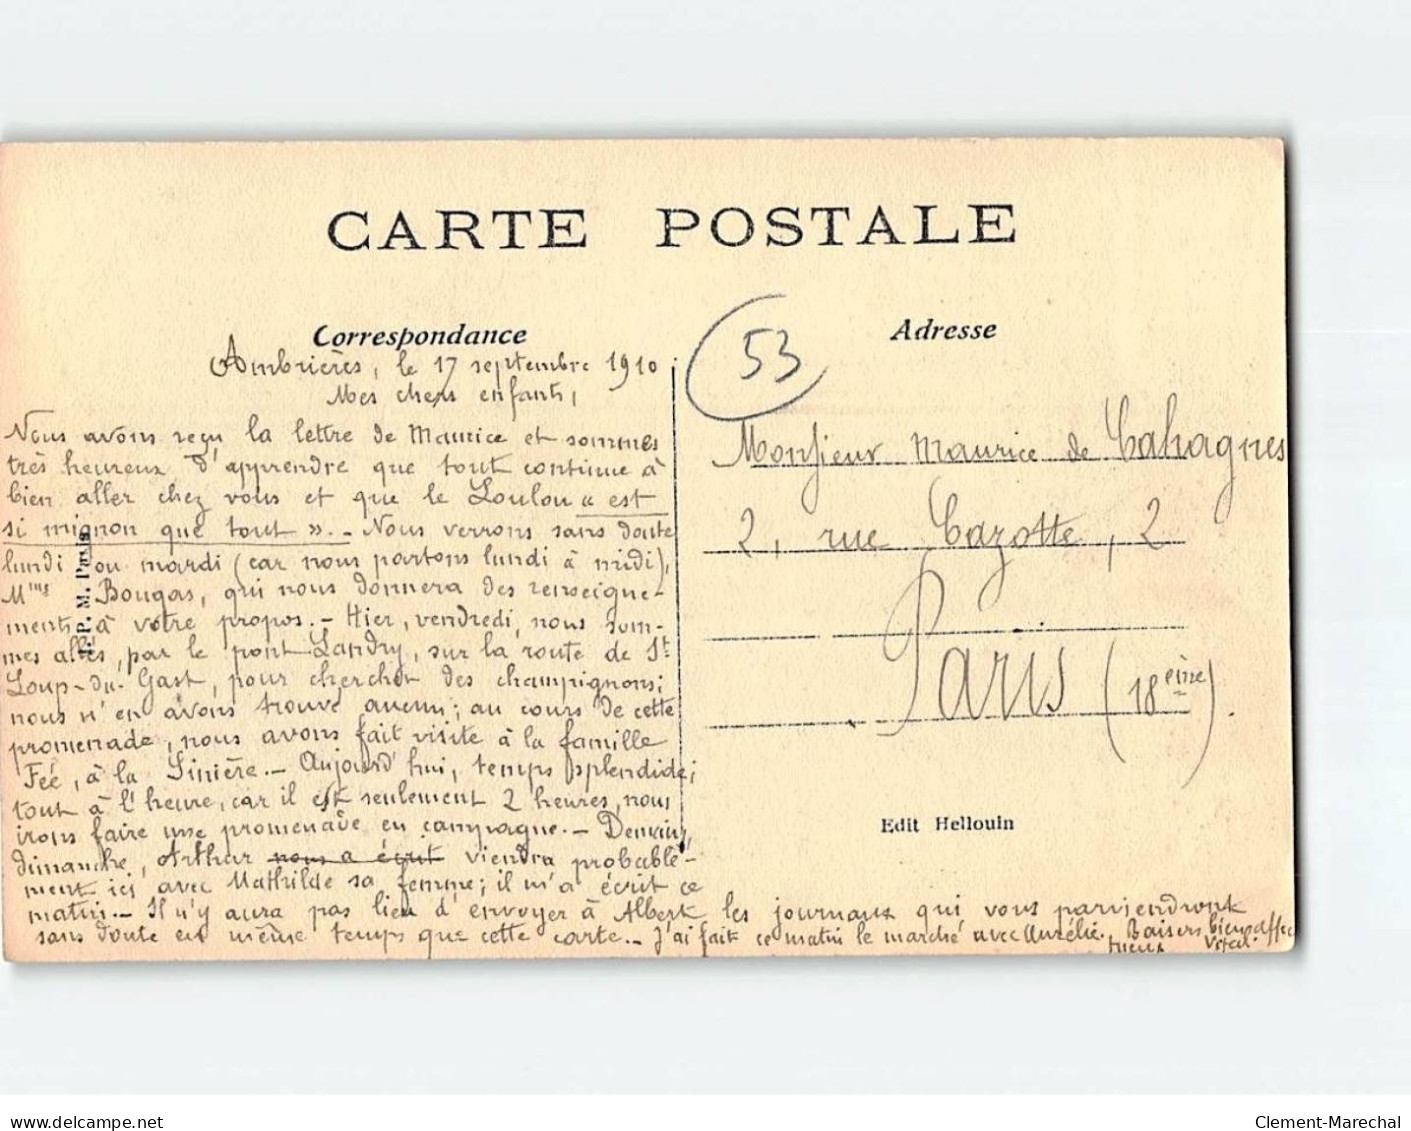 CARTE POSTALE
Correspondance
Adresse
53
Ambrières, le 17 septembre 1910.
Mes chers enfants,
Nous avons reçu la lettre de Maurice et sommes
très heureux d'apprendre que tout continue à
bien aller chez vous et que le Loulou « est
si mignon que tout ». - Nous verrons sans doute
lundi ou mardi (car nous partons lundi à midi),
Mme Bougas, qui nous donnera des renseigne-
ments à votre propos. - Hier, vendredi, nous som-
mes allés, par le pont Landry, sur la route de St
Loup-du-Gast, pour chercher des champignons;
nous n'en avons trouvé aucun; au cours de cette
promenade, nous avons fait visite à la famille
Fée, à la Sinière. - Aujourd'hui, temps splendide;
tout à l'heure, car il est seulement 2 heures, nous
irons faire une promenade en campagne. - Demain,
dimanche, Arthur nous a écrit viendra probable-
ment ici avec Mathilde sa femme; il m'a écrit ce
matin. - Il n'y aura pas lieu d'envoyer à Albert les journaux qui vous parviendront
sans doute en même temps que cette carte. - J'ai fait ce matin le marché avec Aurélie. Baisers bien affec
tueux Vital.
Monsieur Maurice de Cahagnes
2, rue Cazotte, 2
Paris (18ème).
Edit Hellouin
I. P. M. Paris
delcampe.net
Clement-Marechal